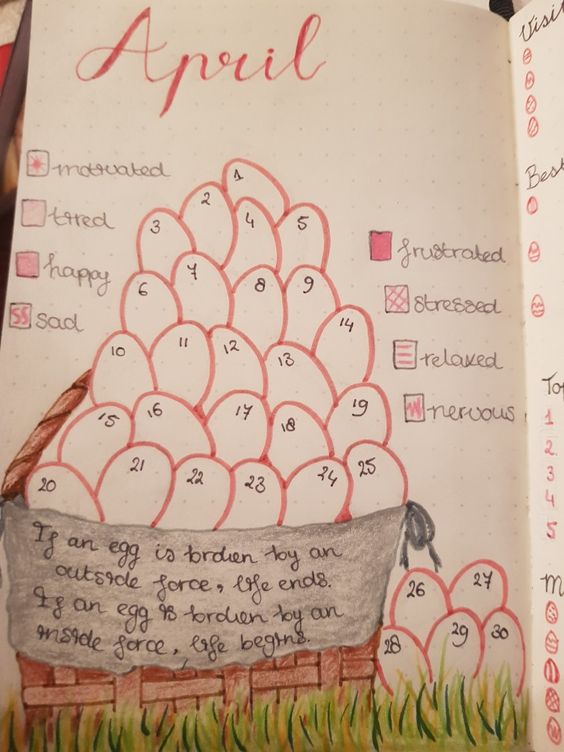 April
motivated
tired
happy
sad
frustrated
stressed
relaxed
nervous
1
2
3
4
5
6
7
8
9
10
11
12
13
14
15
16
17
18
19
20
21
22
23
24
25
26
27
28
29
30
If an egg is broken by an
outside force, life ends.
If an egg is broken by an
inside force, life begins.
Visit
Best
To
1
2
3
4
5
M